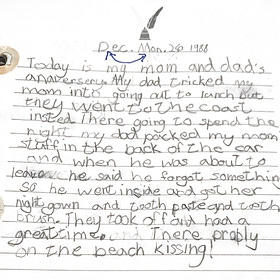 Dec. Mon. 26 1988
Today is my mom and dad's
anaversery. My dad tricked my
mom into going out to lunch but
they went to the coast
insted. There going to spend the
night my dad packed my mom
staff in the back of the car
and when he was about to
leave he said he forgot something
So he went inside and got her
night gown and tooth paste and tooth
brush. They took off and had a
great time. and There probly
on the beach kissing!